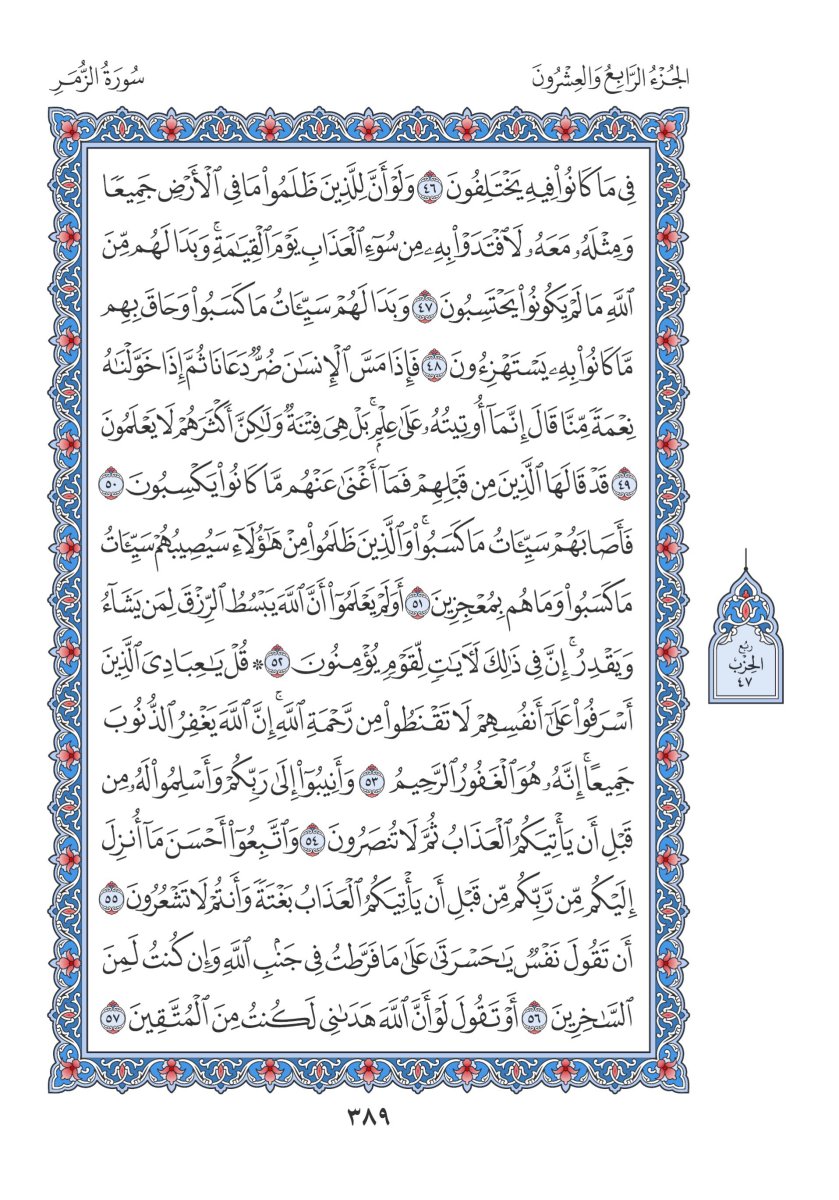 الجُزْءُ الرَّابِعُ وَالعِشْرُونَ
سُورَةُ الزُّمَرِ
فِي مَا كَانُوا۟ فِيهِ يَخْتَلِفُونَ ٤٦ وَلَوْ أَنَّ لِلَّذِينَ ظَلَمُوا۟ مَا فِي ٱلْأَرْضِ جَمِيعًا
وَمِثْلَهُۥ مَعَهُۥ لَٱفْتَدَوْا۟ بِهِۦ مِن سُوٓءِ ٱلْعَذَابِ يَوْمَ ٱلْقِيَٰمَةِۚ وَبَدَا لَهُم مِّنَ
ٱللَّهِ مَا لَمْ يَكُونُوا۟ يَحْتَسِبُونَ ٤٧ وَبَدَا لَهُمْ سَيِّـَٔاتُ مَا كَسَبُوا۟ وَحَاقَ بِهِم
مَّا كَانُوا۟ بِهِۦ يَسْتَهْزِءُونَ ٤٨ فَإِذَا مَسَّ ٱلْإِنسَٰنَ ضُرٌّ دَعَانَا ثُمَّ إِذَا خَوَّلْنَٰهُ
نِعْمَةً مِّنَّا قَالَ إِنَّمَآ أُوتِيتُهُۥ عَلَىٰ عِلْمٍۭۚ بَلْ هِيَ فِتْنَةٌ وَلَٰكِنَّ أَكْثَرَهُمْ لَا يَعْلَمُونَ
٤٩ قَدْ قَالَهَا ٱلَّذِينَ مِن قَبْلِهِمْ فَمَآ أَغْنَىٰ عَنْهُم مَّا كَانُوا۟ يَكْسِبُونَ ٥٠
فَأَصَابَهُمْ سَيِّـَٔاتُ مَا كَسَبُوا۟ۚ وَٱلَّذِينَ ظَلَمُوا۟ مِنْ هَٰٓؤُلَآءِ سَيُصِيبُهُمْ سَيِّـَٔاتُ
مَا كَسَبُوا۟ وَمَا هُم بِمُعْجِزِينَ ٥١ أَوَلَمْ يَعْلَمُوٓا۟ أَنَّ ٱللَّهَ يَبْسُطُ ٱلرِّزْقَ لِمَن يَشَآءُ
وَيَقْدِرُۚ إِنَّ فِي ذَٰلِكَ لَءَايَٰتٍ لِّقَوْمٍ يُؤْمِنُونَ ٥٢ * قُلْ يَٰعِبَادِيَ ٱلَّذِينَ
أَسْرَفُوا۟ عَلَىٰٓ أَنفُسِهِمْ لَا تَقْنَطُوا۟ مِن رَّحْمَةِ ٱللَّهِۚ إِنَّ ٱللَّهَ يَغْفِرُ ٱلذُّنُوبَ
جَمِيعًاۚ إِنَّهُۥ هُوَ ٱلْغَفُورُ ٱلرَّحِيمُ ٥٣ وَأَنِيبُوٓا۟ إِلَىٰ رَبِّكُمْ وَأَسْلِمُوا۟ لَهُۥ مِن
قَبْلِ أَن يَأْتِيَكُمُ ٱلْعَذَابُ ثُمَّ لَا تُنصَرُونَ ٥٤ وَٱتَّبِعُوٓا۟ أَحْسَنَ مَآ أُنزِلَ
إِلَيْكُم مِّن رَّبِّكُم مِّن قَبْلِ أَن يَأْتِيَكُمُ ٱلْعَذَابُ بَغْتَةً وَأَنتُمْ لَا تَشْعُرُونَ ٥٥
أَن تَقُولَ نَفْسٌ يَٰحَسْرَتَىٰ عَلَىٰ مَا فَرَّطتُ فِي جَنۢبِ ٱللَّهِ وَإِن كُنتُ لَمِنَ
ٱلسَّٰخِرِينَ ٥٦ أَوْ تَقُولَ لَوْ أَنَّ ٱللَّهَ هَدَىٰنِي لَكُنتُ مِنَ ٱلْمُتَّقِينَ ٥٧
رُبُع
الحِزْبِ
٤٧
٣٨٩